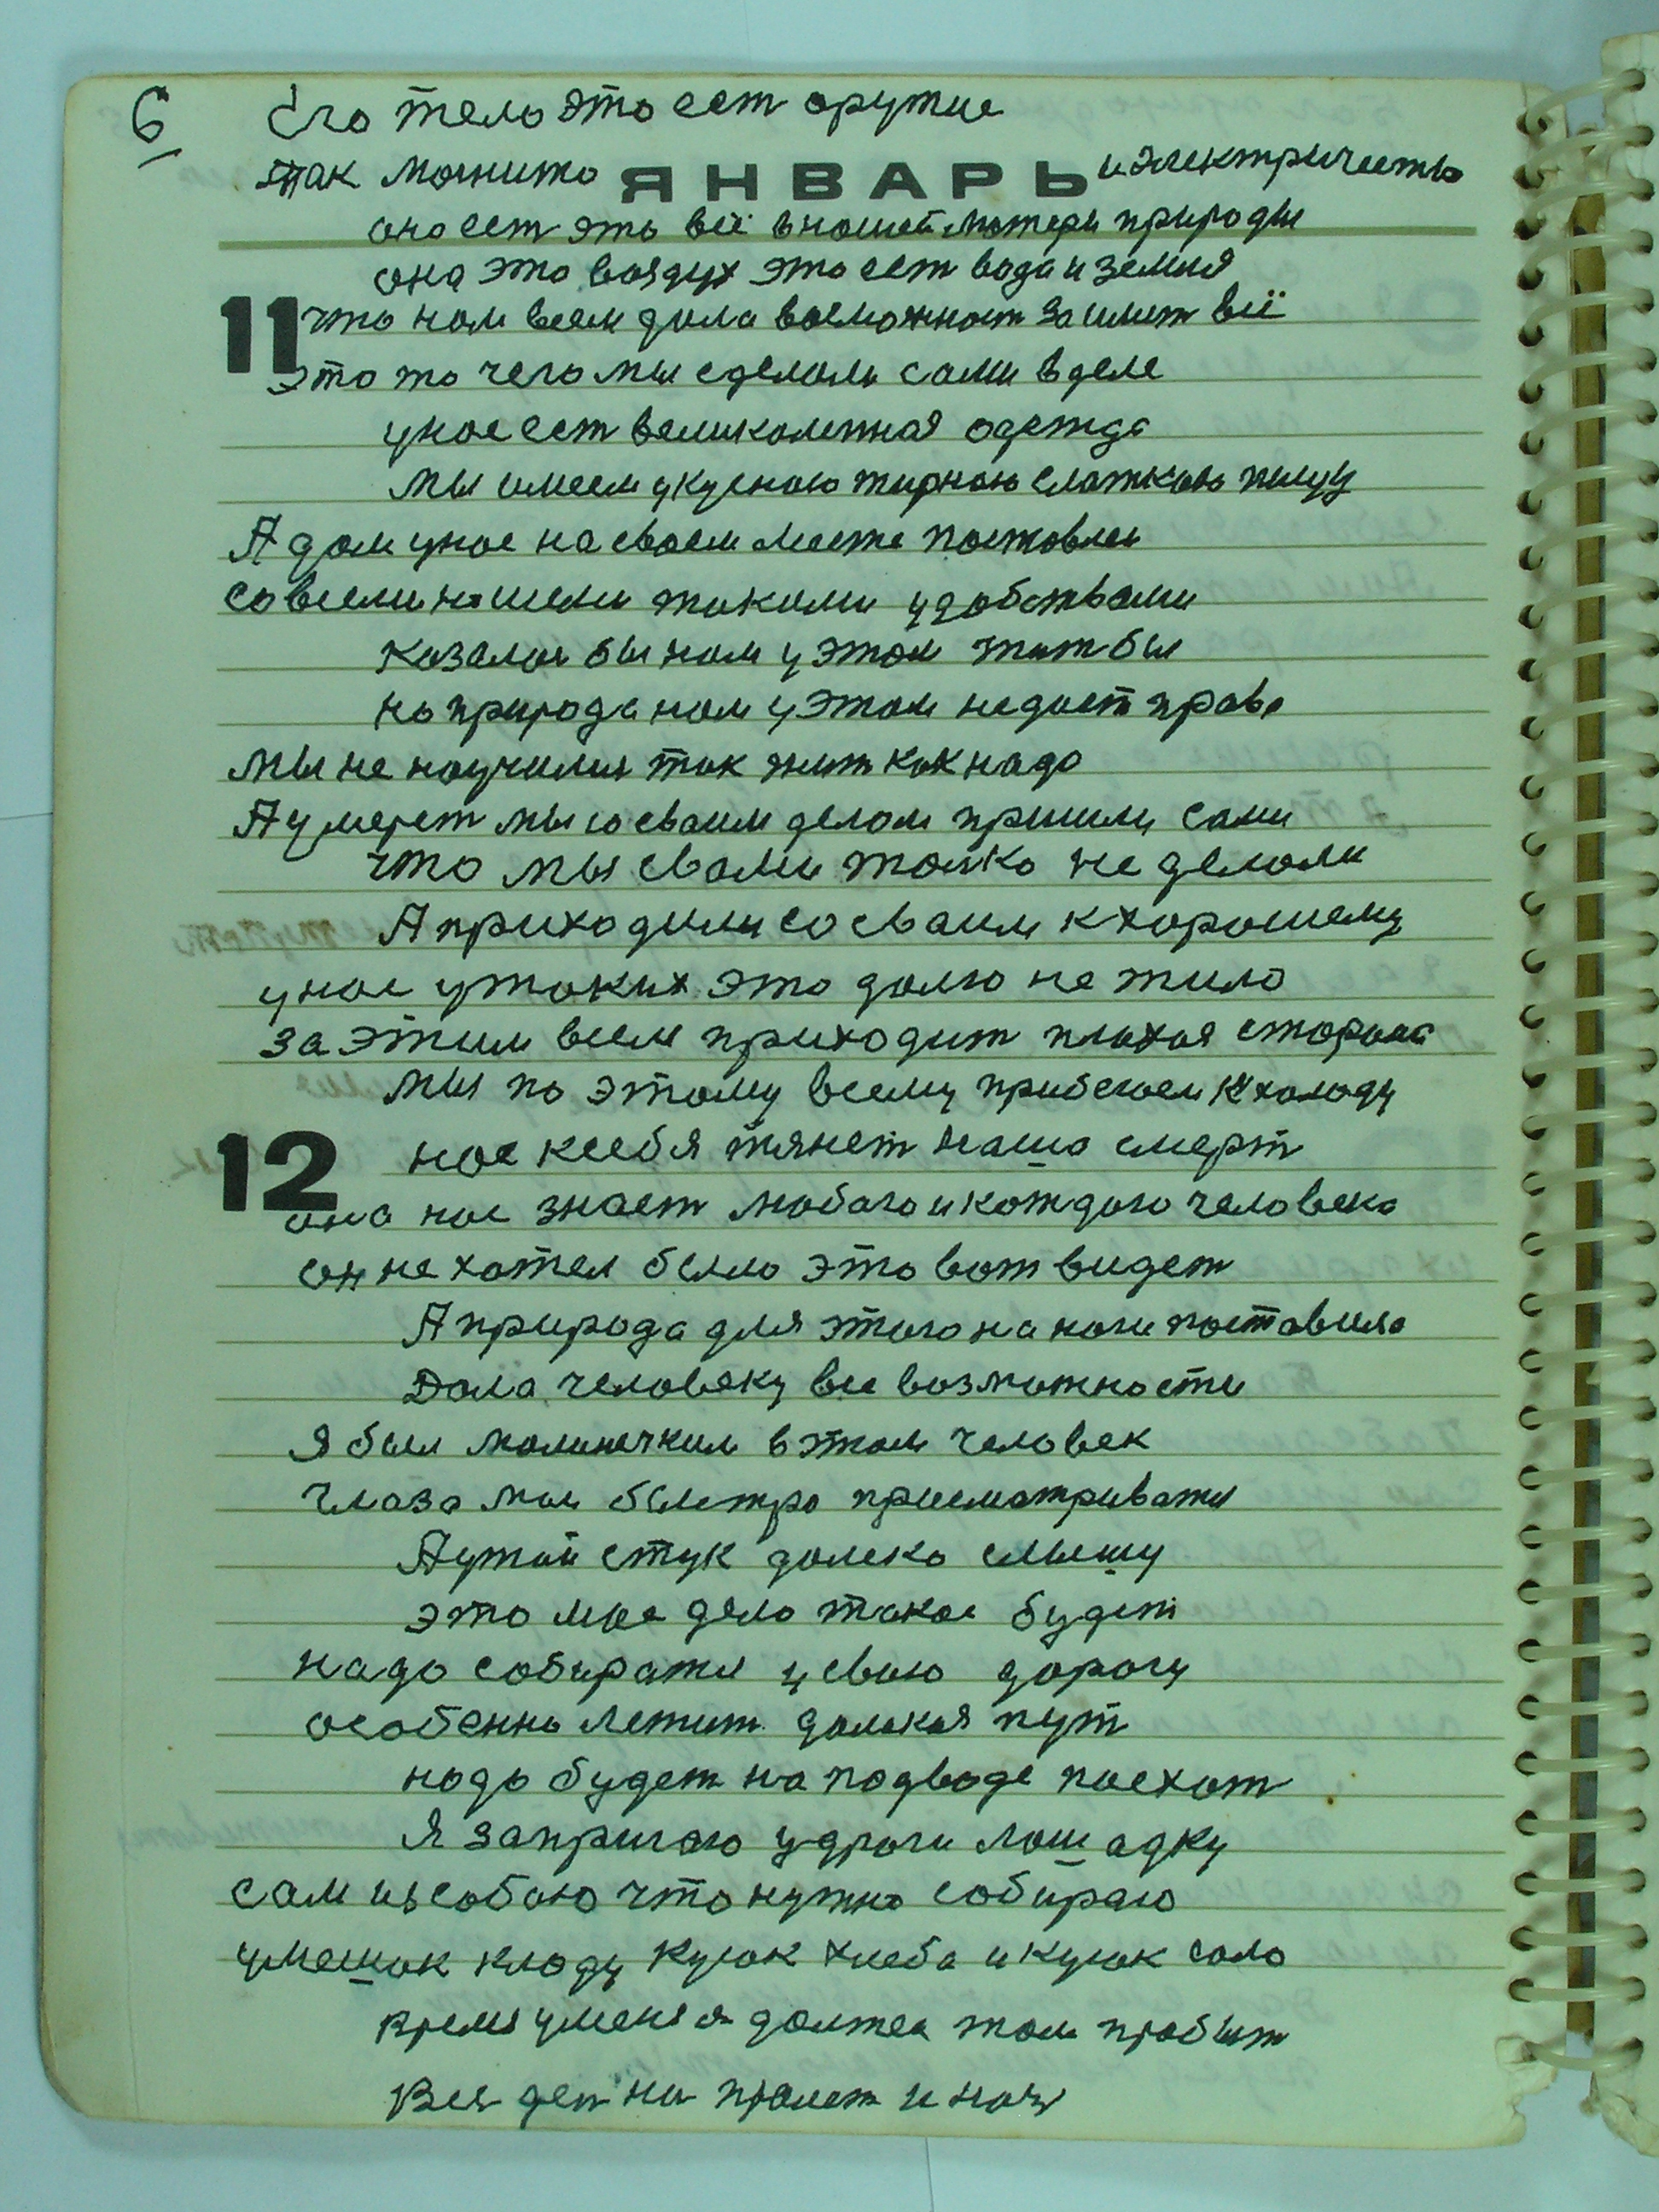 6
Его тело это ест оружие
так магнито ЯНВАРЬ и электричество
оно ест это всё в нашей матери природы
она это воздух это ест вода и земля
11 что нам всем дала возможност
это то чего мы сделали сами в деле
у нас ест великолепная одежда
мы имеем укусною жирною слаткою пищу
А дом у нас на своем месте поставлен
со всеми нашими такими удобствами
казалос бы нам у этом жит бы
но природа нам у этом не дает права
мы не научились так жит как надо
А умерет мы со своим делом пришли сами
что мы свами толко не делали
А приходили со своим к хорошему
у нас у таких это долго не жило
за этим всем приходит плохая сторона
мы по этому всему прибегаем к холоду
12 нас ксебя тянет наша смерт
она нас знает любого и кождого человека
он не хотел было это вот видет
А природа для этого на ноги поставила
Дала человеку все возможности
Я был малинечким в этом человек
глаза мои быстро присматриватся
А ужой стук далеко слышу
это мое дело такое будет
надо собиратся у свою дорогу
особенно лежит далекая пут
надо будет на подводе поехат
Я запригаю у дроги лошадку
сам из собою что нужно собираю
у мешок кладу кусок хлеба и кусок сало
время у меня должен там пробыт
Вес ден на пролет и ноч